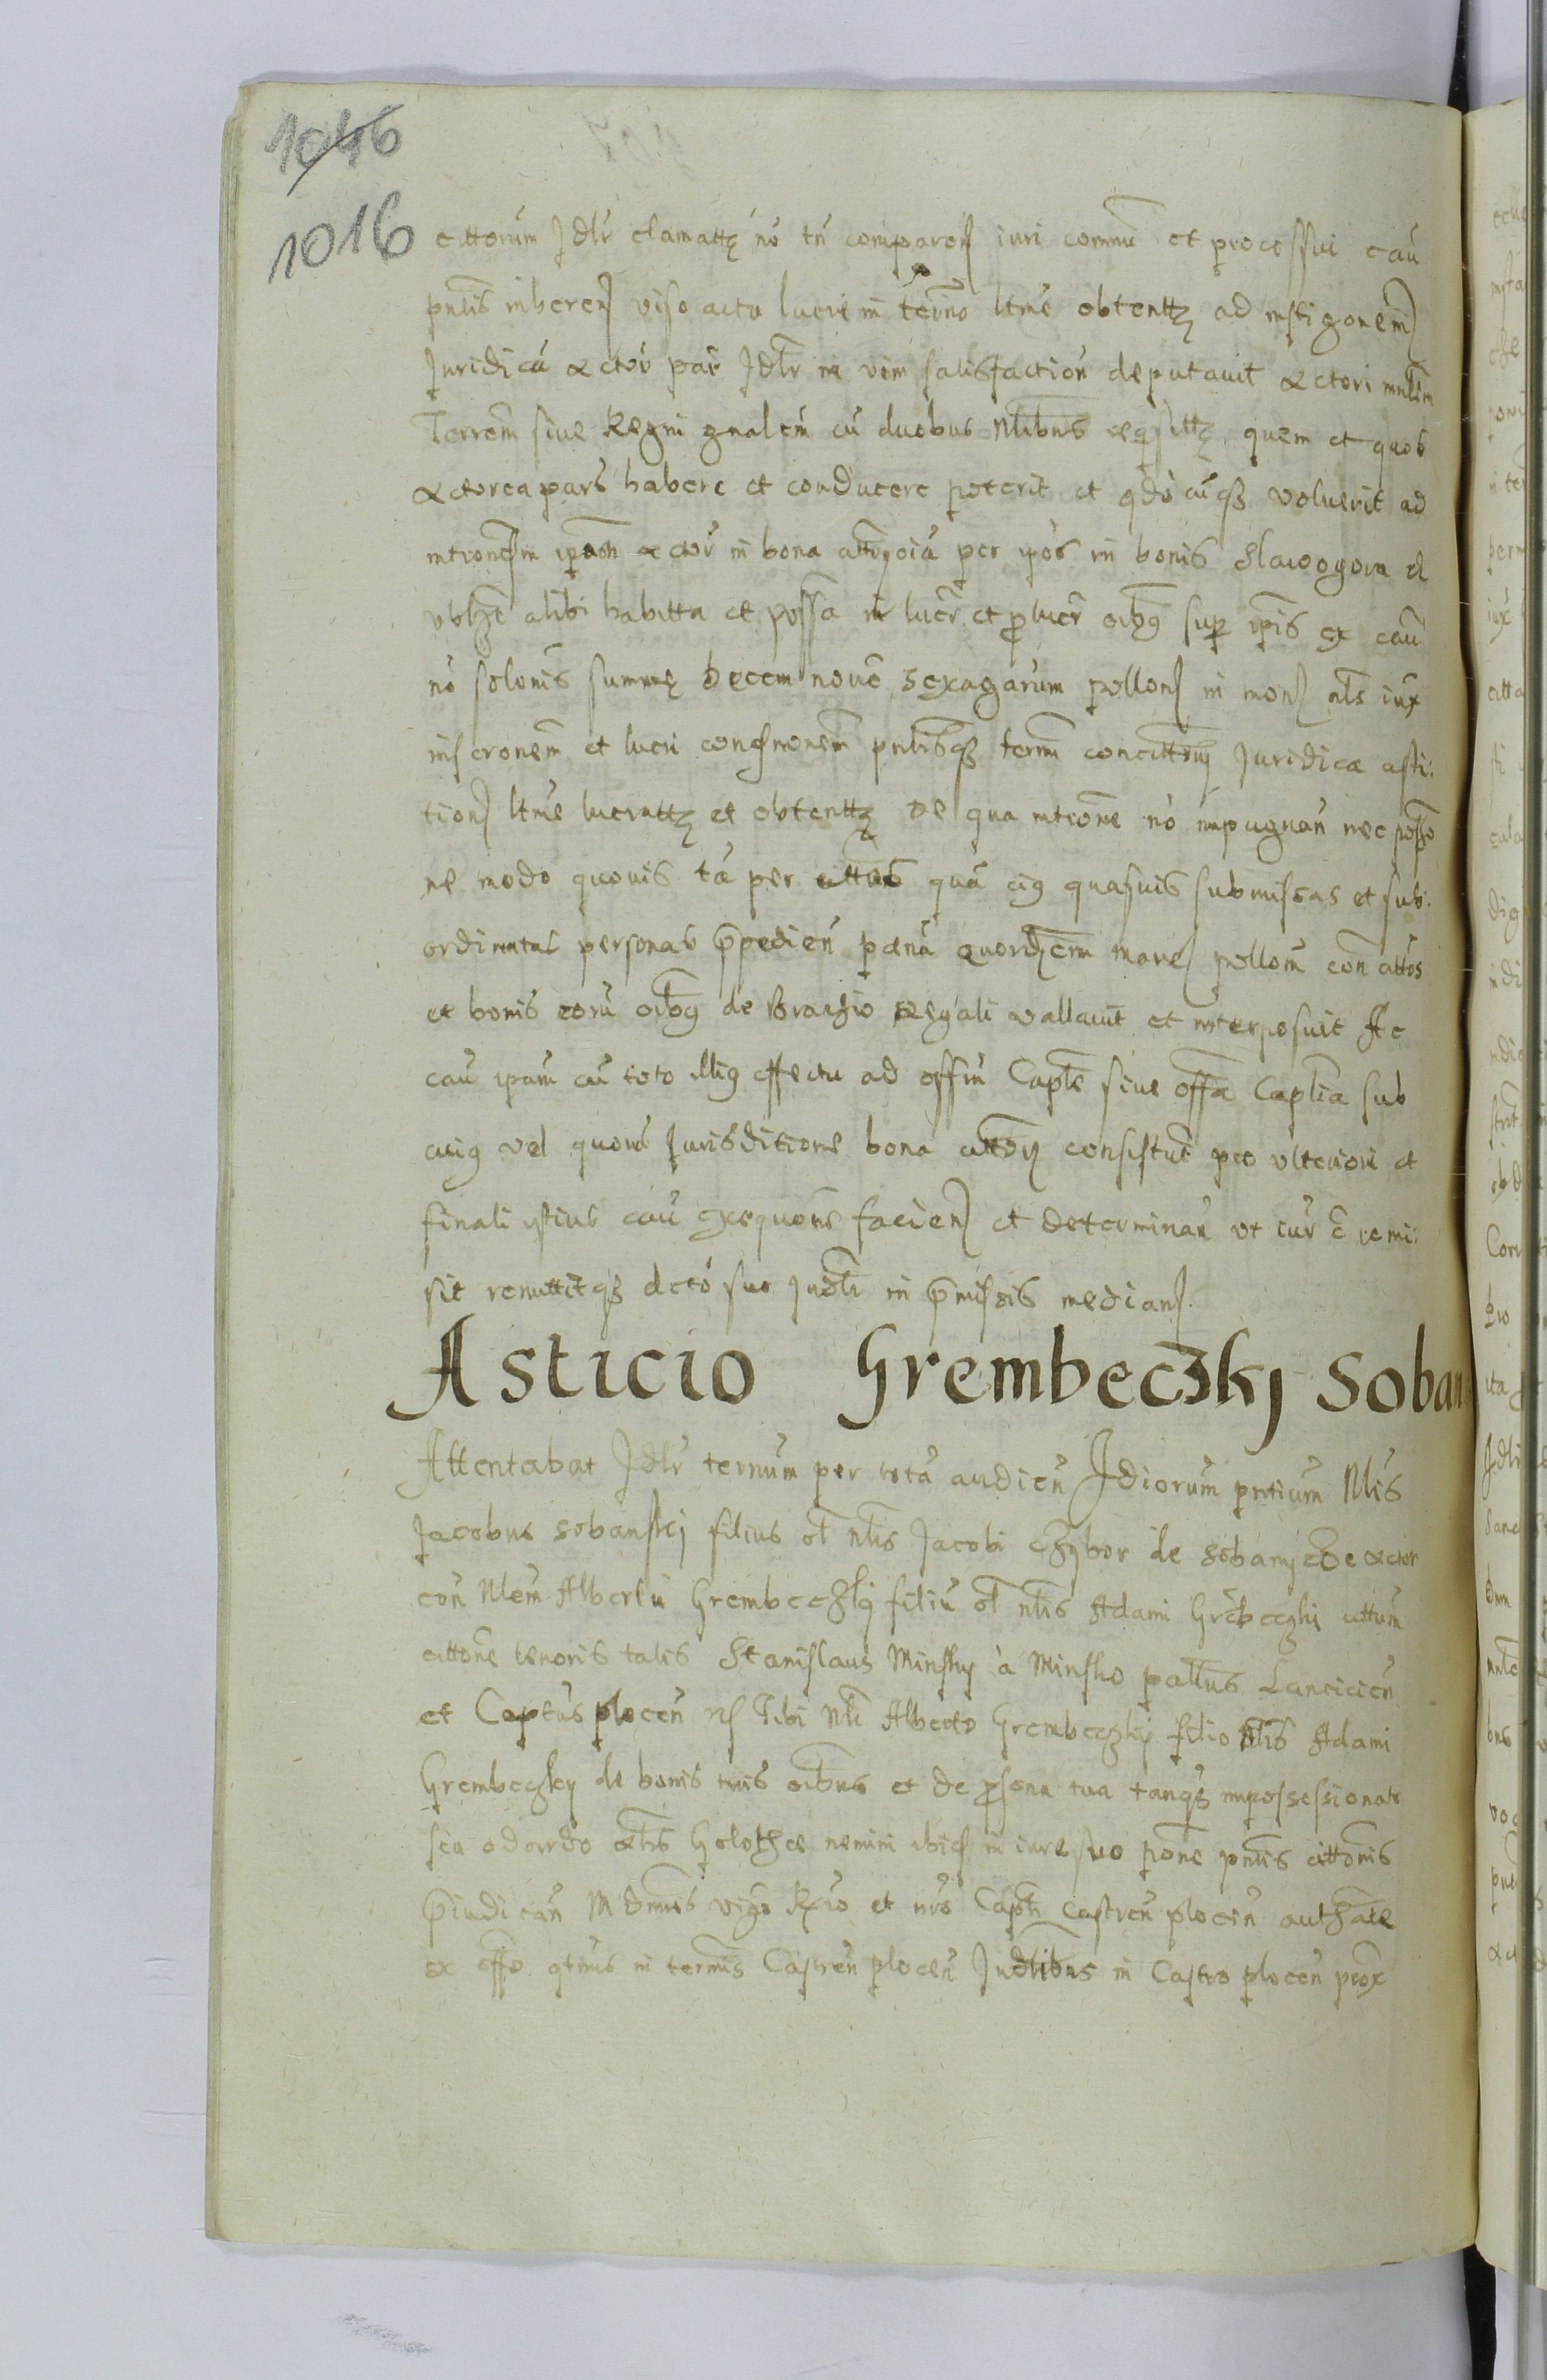 1046
1016
cittorum Jdlr clamattȩ nō tn̄ comparen iuri commū et processui cau
pn̄tis inheren viso actu lucri in termō ltme obtenttȩ ad instigonem
Juridicā actor par Jdlr in vim satisfaction deputavit actori mnlem
Terrem sive Regni gnalem cū duobus Nlibus quem et quos
actorea pars habere et conducere poterit et qdōcūq̄ȝ voluerit ad
in bona per ipōs in bonis Slawogora et
alibi habitta et possa in lucr et p lucr oibq sup ipis ex cau
nō solonis summȩ decem novē sexagarum pollon in mon nls iux
inscronem et lucri pn̄tibȝ termi Juridica asti:
tion ltme lucrattȝ et obtenttȝ de qua intrōne nō impugnan nec
ne modo quovis tā per cittos quā eiq quasuis submissas et sub:
ordinatas personas p̄pedien pœnā marc pollom con cittos
et bonis eorū oibq de Brachio regali vallavit et interposuit Ac
cau ipam cū toto illiq effectu ad offm Captle sive offa Captlia sub
cuiq vel quorū Jurisditione bona cittorȝ consistūt pro ulteriori et
finali istius cau exequōne facien et determinan ut iur ē remi:
sit remittitq̄ȝ dctō suo Judlī in p̄missis median.
Asticio Grembeczkj Soban
Attentabat Jdlr termum per totā audien Jdiorum pn̄tium Nlis
Jacobus Sobanskj filius ol nlis Jacobi Czybor de Sobanj actor
con Nlem Albertū Grembeczkj filiū ol nlis Adami Grēbeczki cittum
cittone tenoris talis Stanislaus Minsky à Minsko paltnus Lancicien
et Captus plocen Tibi Nli Alberto Grembeczkij filio nlis Adami
Grembeczky de bonis tuis oibus et de p̄sona tua tanq̄ȝ impossessionato
seu odardo als Holotha nemini in iure suo pōne pn̄tis cittōnis
p̄iudican M dmus et nrō Captli castren plocen authate
ex offō qtnus in termis Castren plocen Judlibus in Castro plocen prox